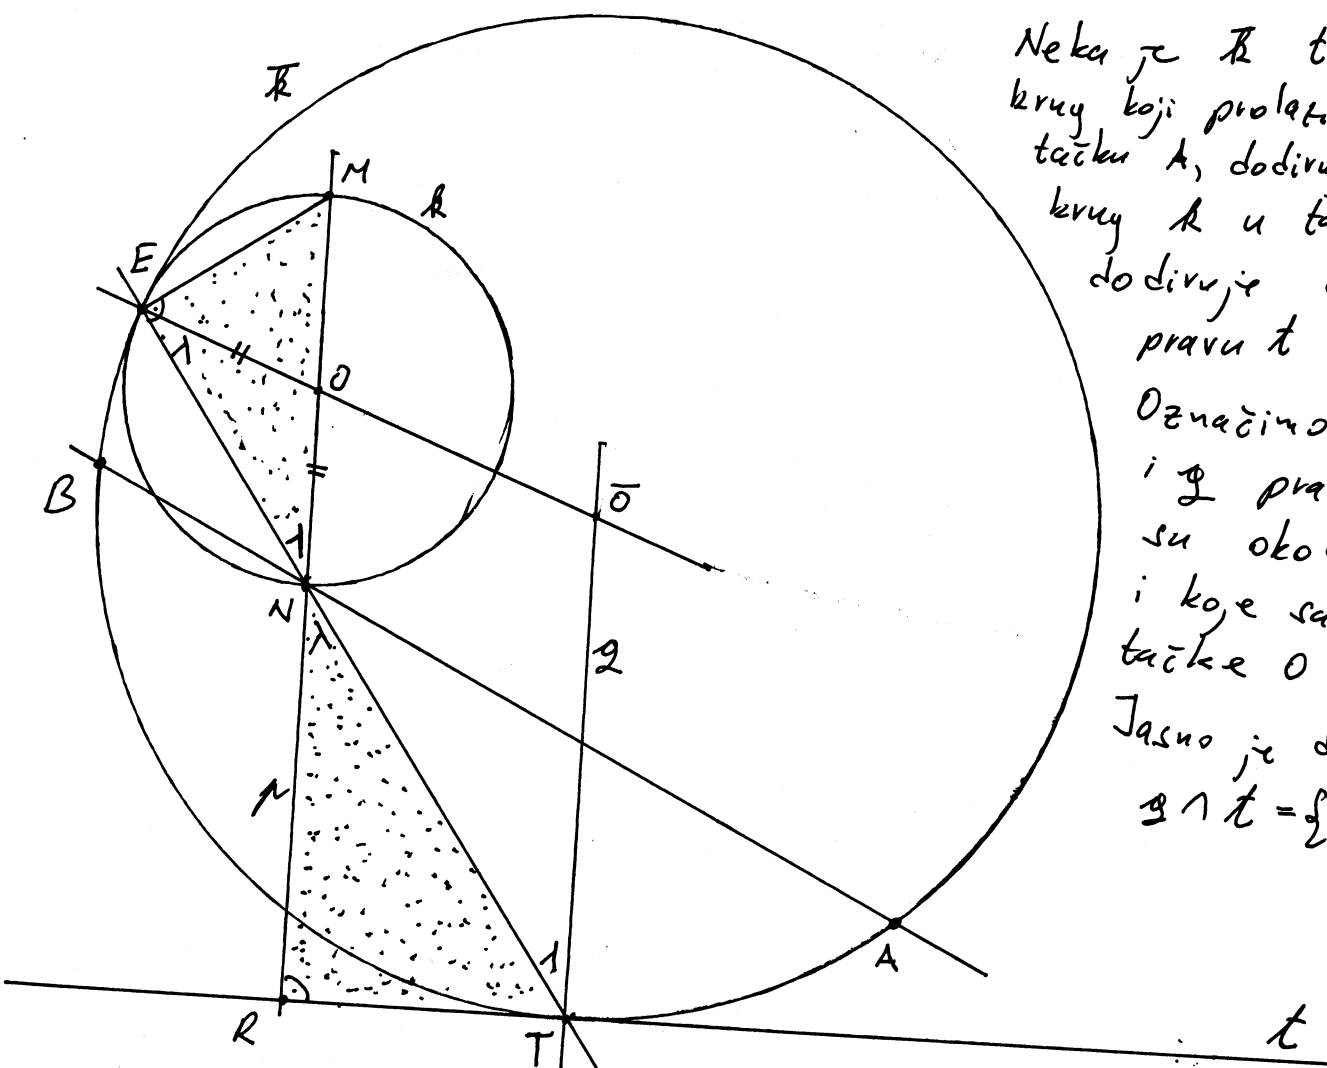 Neka je k̄ t
krug koji prolazi
tačku A, dodiru
krug k u ta
dodiruje
pravu t
Označimo
i q pra
su oko
i koje sa
tačke O
Jasno je d
q ∩ t = {
k̄
M
k
E
λ
O
B
Ō
λ
N
λ
q
p
A
λ
R
T
t